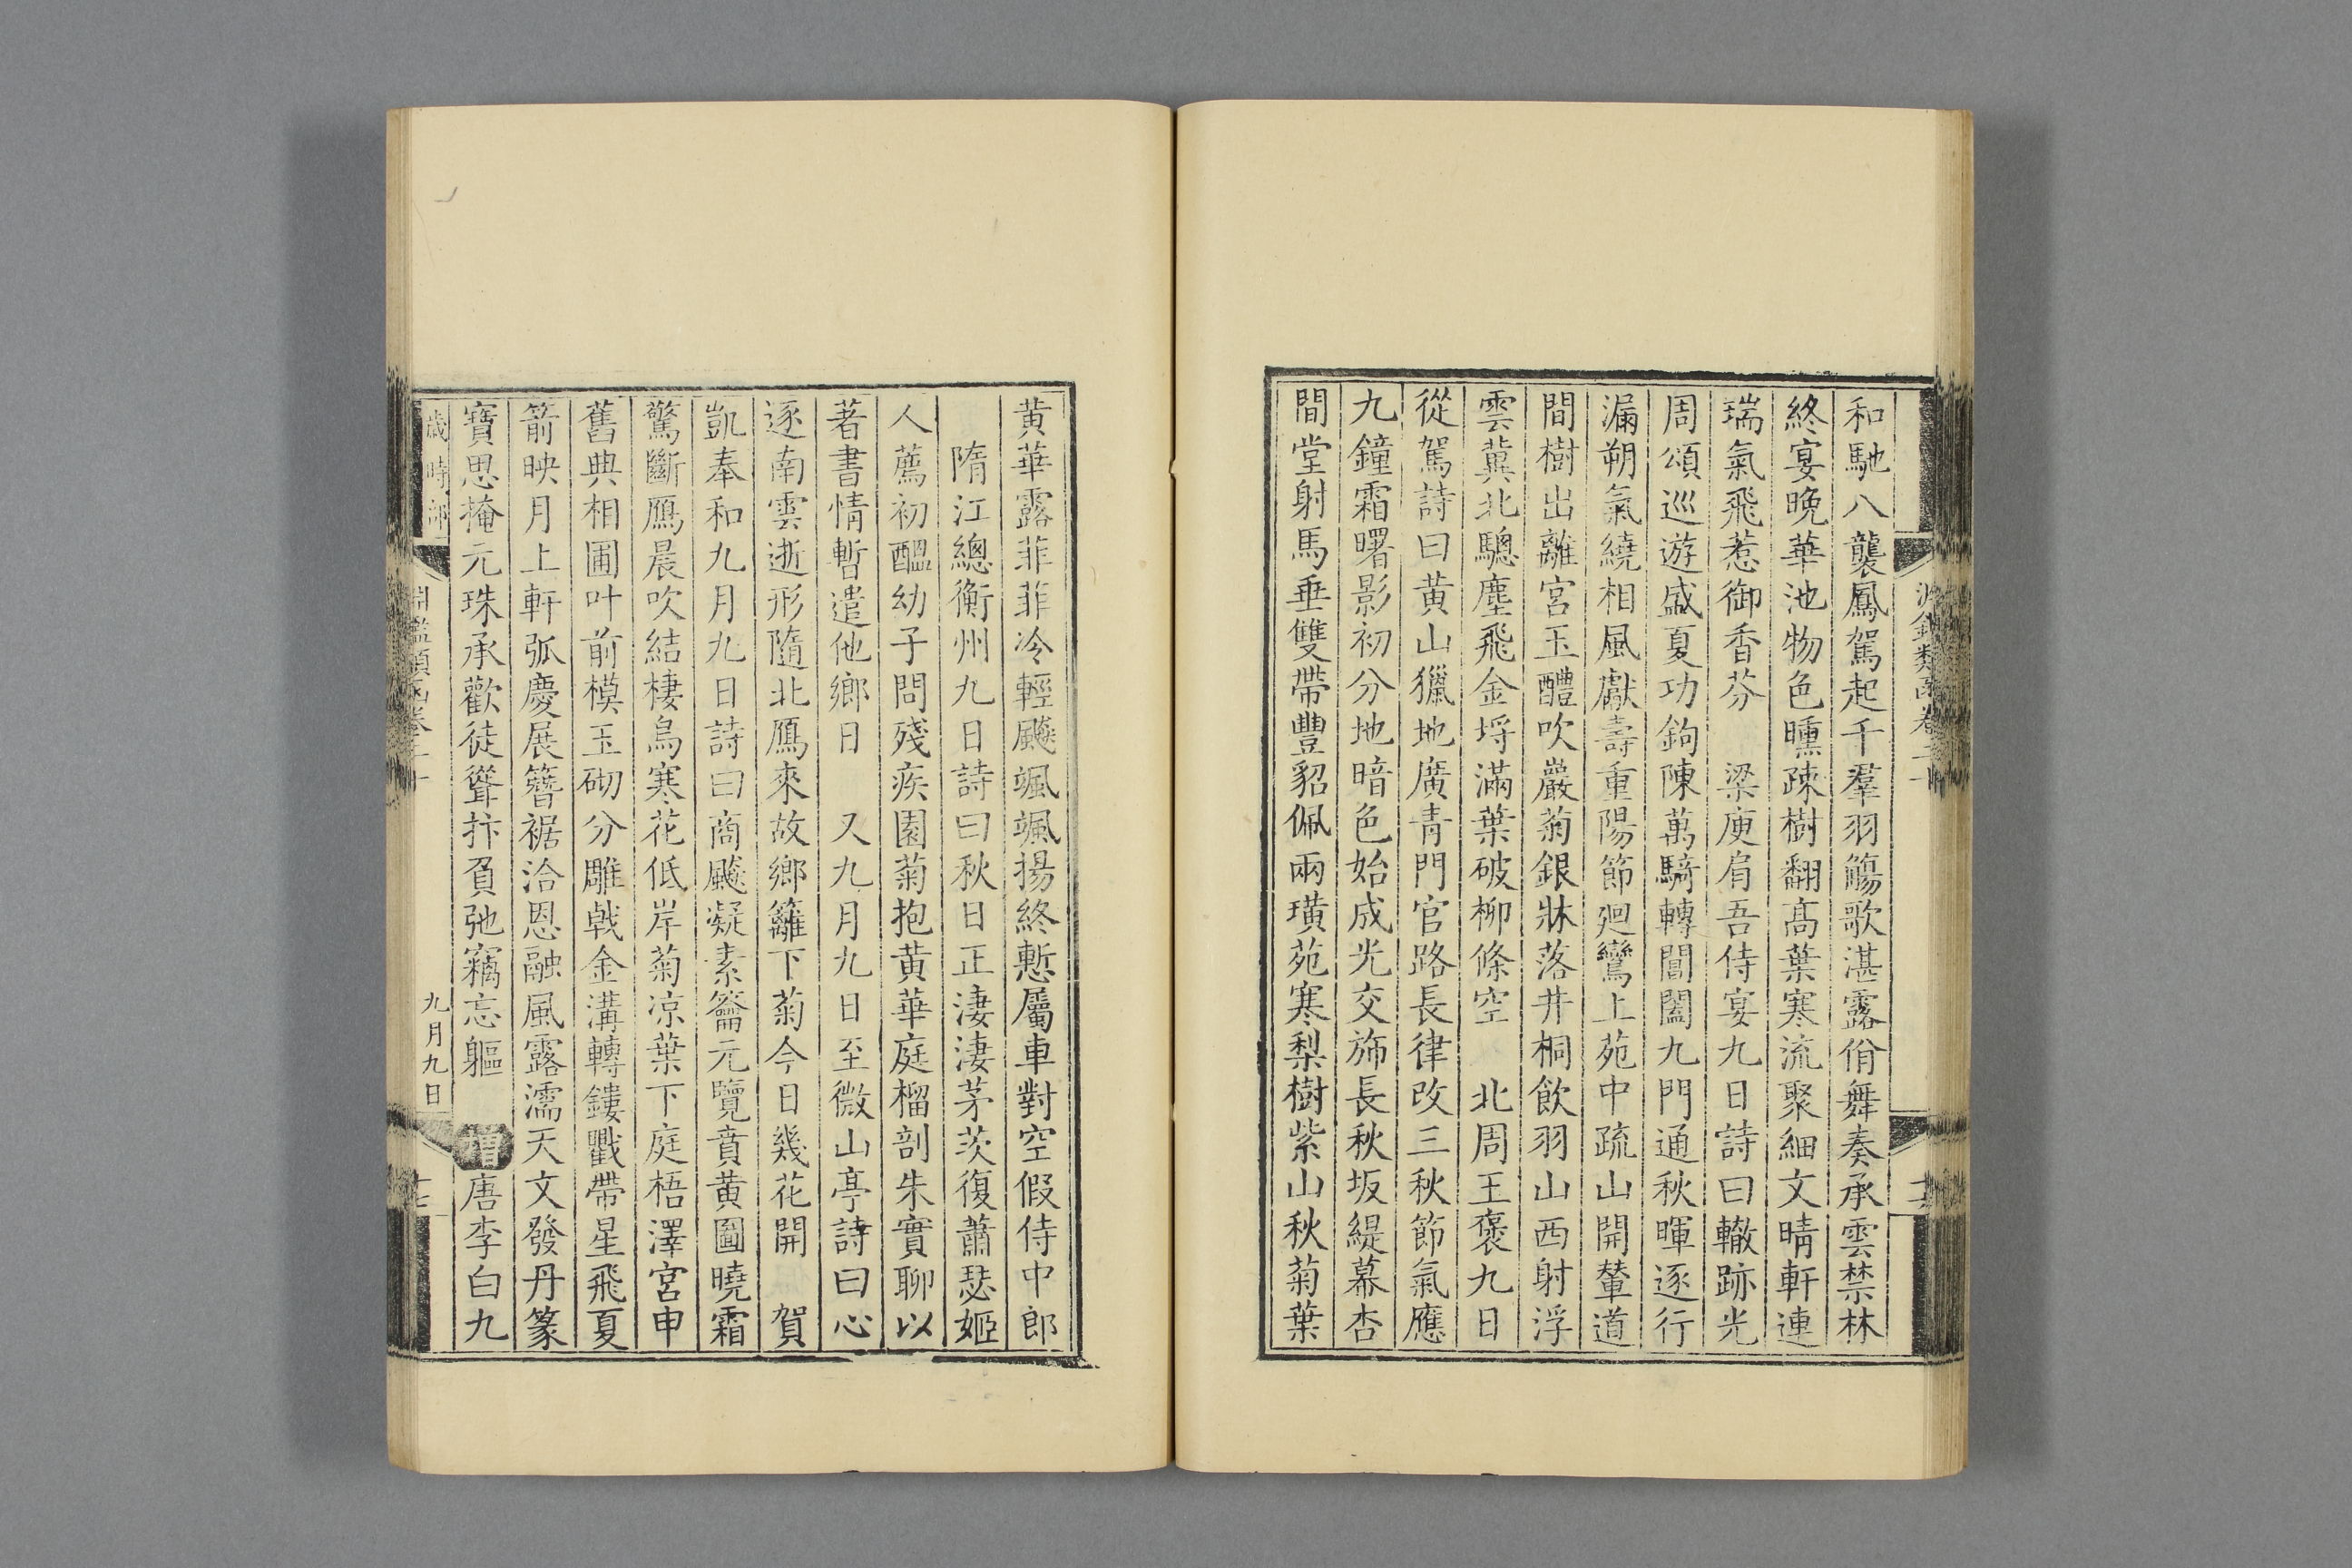 和馳八襲鳳駕起千羣羽觴歌湛露佾舞奏承雲禁林
終宴晚華池物色曛疎樹翻高葉寒流聚細文晴軒連
瑞氣飛惹御香芬　梁庾肩吾侍宴九日詩曰轍跡光
周頌巡遊盛夏功鉤陳萬騎轉閶闔九門通秋暉逐行
漏朔氣繞相風獻壽重陽節廻鸞上苑中疏山開輦道
間樹出離宮玉醴吹巖菊銀牀落井桐飲羽山西射浮
雲冀北驄塵飛金埒滿葉破柳條空　北周王襃九日
從駕詩曰黃山獵地廣青門官路長律改三秋節氣應
九鐘霜曙影初分地暗色始成光交斾長秋坂緹幕杏
間堂射馬垂雙帶豐貂佩兩璜苑寒梨樹紫山秋菊葉
黃華露菲菲冷輕飈颯颯揚終慙屬車對空假侍中郎
隋江總衡州九日詩曰秋日正淒淒茅茨復蕭瑟姬
人薦初醞幼子問殘疾園菊抱黃華庭榴剖朱實聊以
著書情暫遣他鄉日　又九月九日至微山亭詩曰心
逐南雲逝形隨北鴈來故鄉籬下菊今日幾花開　賀
凱奉和九月九日詩曰商飈凝素籥元覽賁黃圖曉霜
驚斷鴈晨吹結棲烏寒花低岸菊凉葉下庭梧澤宮申
舊典相圃叶前模玉砌分雕戟金溝轉鏤戵帶星飛夏
箭映月上軒弧慶展簪裾洽恩融風露濡天文發丹篆
寶思掩元珠承歡徒聳抃負弛竊忘軀　增唐李白九
歲時部　淵鑑類函卷二十　九月九日　十七